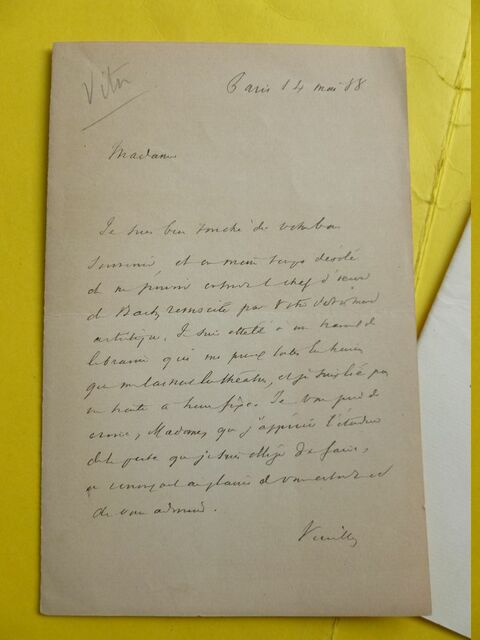 Vitu
Paris 14 mai 88
Madame
Je suis bien touché de votre bon
souvenir et en même temps désolé
de ne pouvoir entendre le chef d'œuvre
de Bach ressuscité par votre dévouement
artistique. Je suis attelé à un travail de
librairie qui me prend toutes les heures
que me laisse le théâtre, et je suis lié par
un traité à heure fixe. Je vous prie de
croire, Madame, que j'apprécie l'étendue
de la perte que je suis obligé de faire,
en renonçant au plaisir de vous entendre et
de vous admirer.